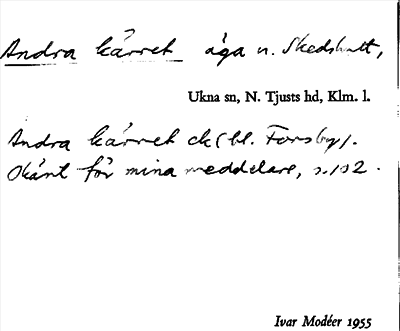 Andra kärret äga u. Skedshult,
Ukna sn, N. Tjusts hd, Klm. l.
Andra kärret ek (bl. Forsby).
Okänt för mina meddelare, s. 102.
Ivar Modéer 1955